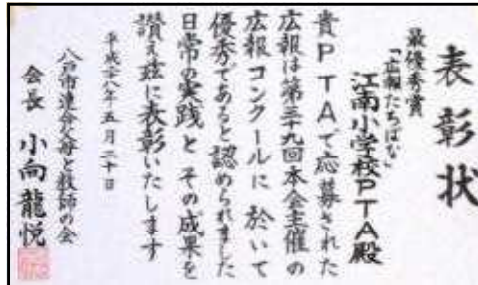 表彰状
最優秀賞
「広報たちばな」
江南小学校PTA殿
貴PTAで応募された
広報は第三十九回本会主催の
広報コンクールに於いて
優秀であると認められました
日常の実践とその成果を
讃え茲に表彰いたします
平成二十八年五月二十日
八戸市連合父母と教師の会
会長 小向龍悦